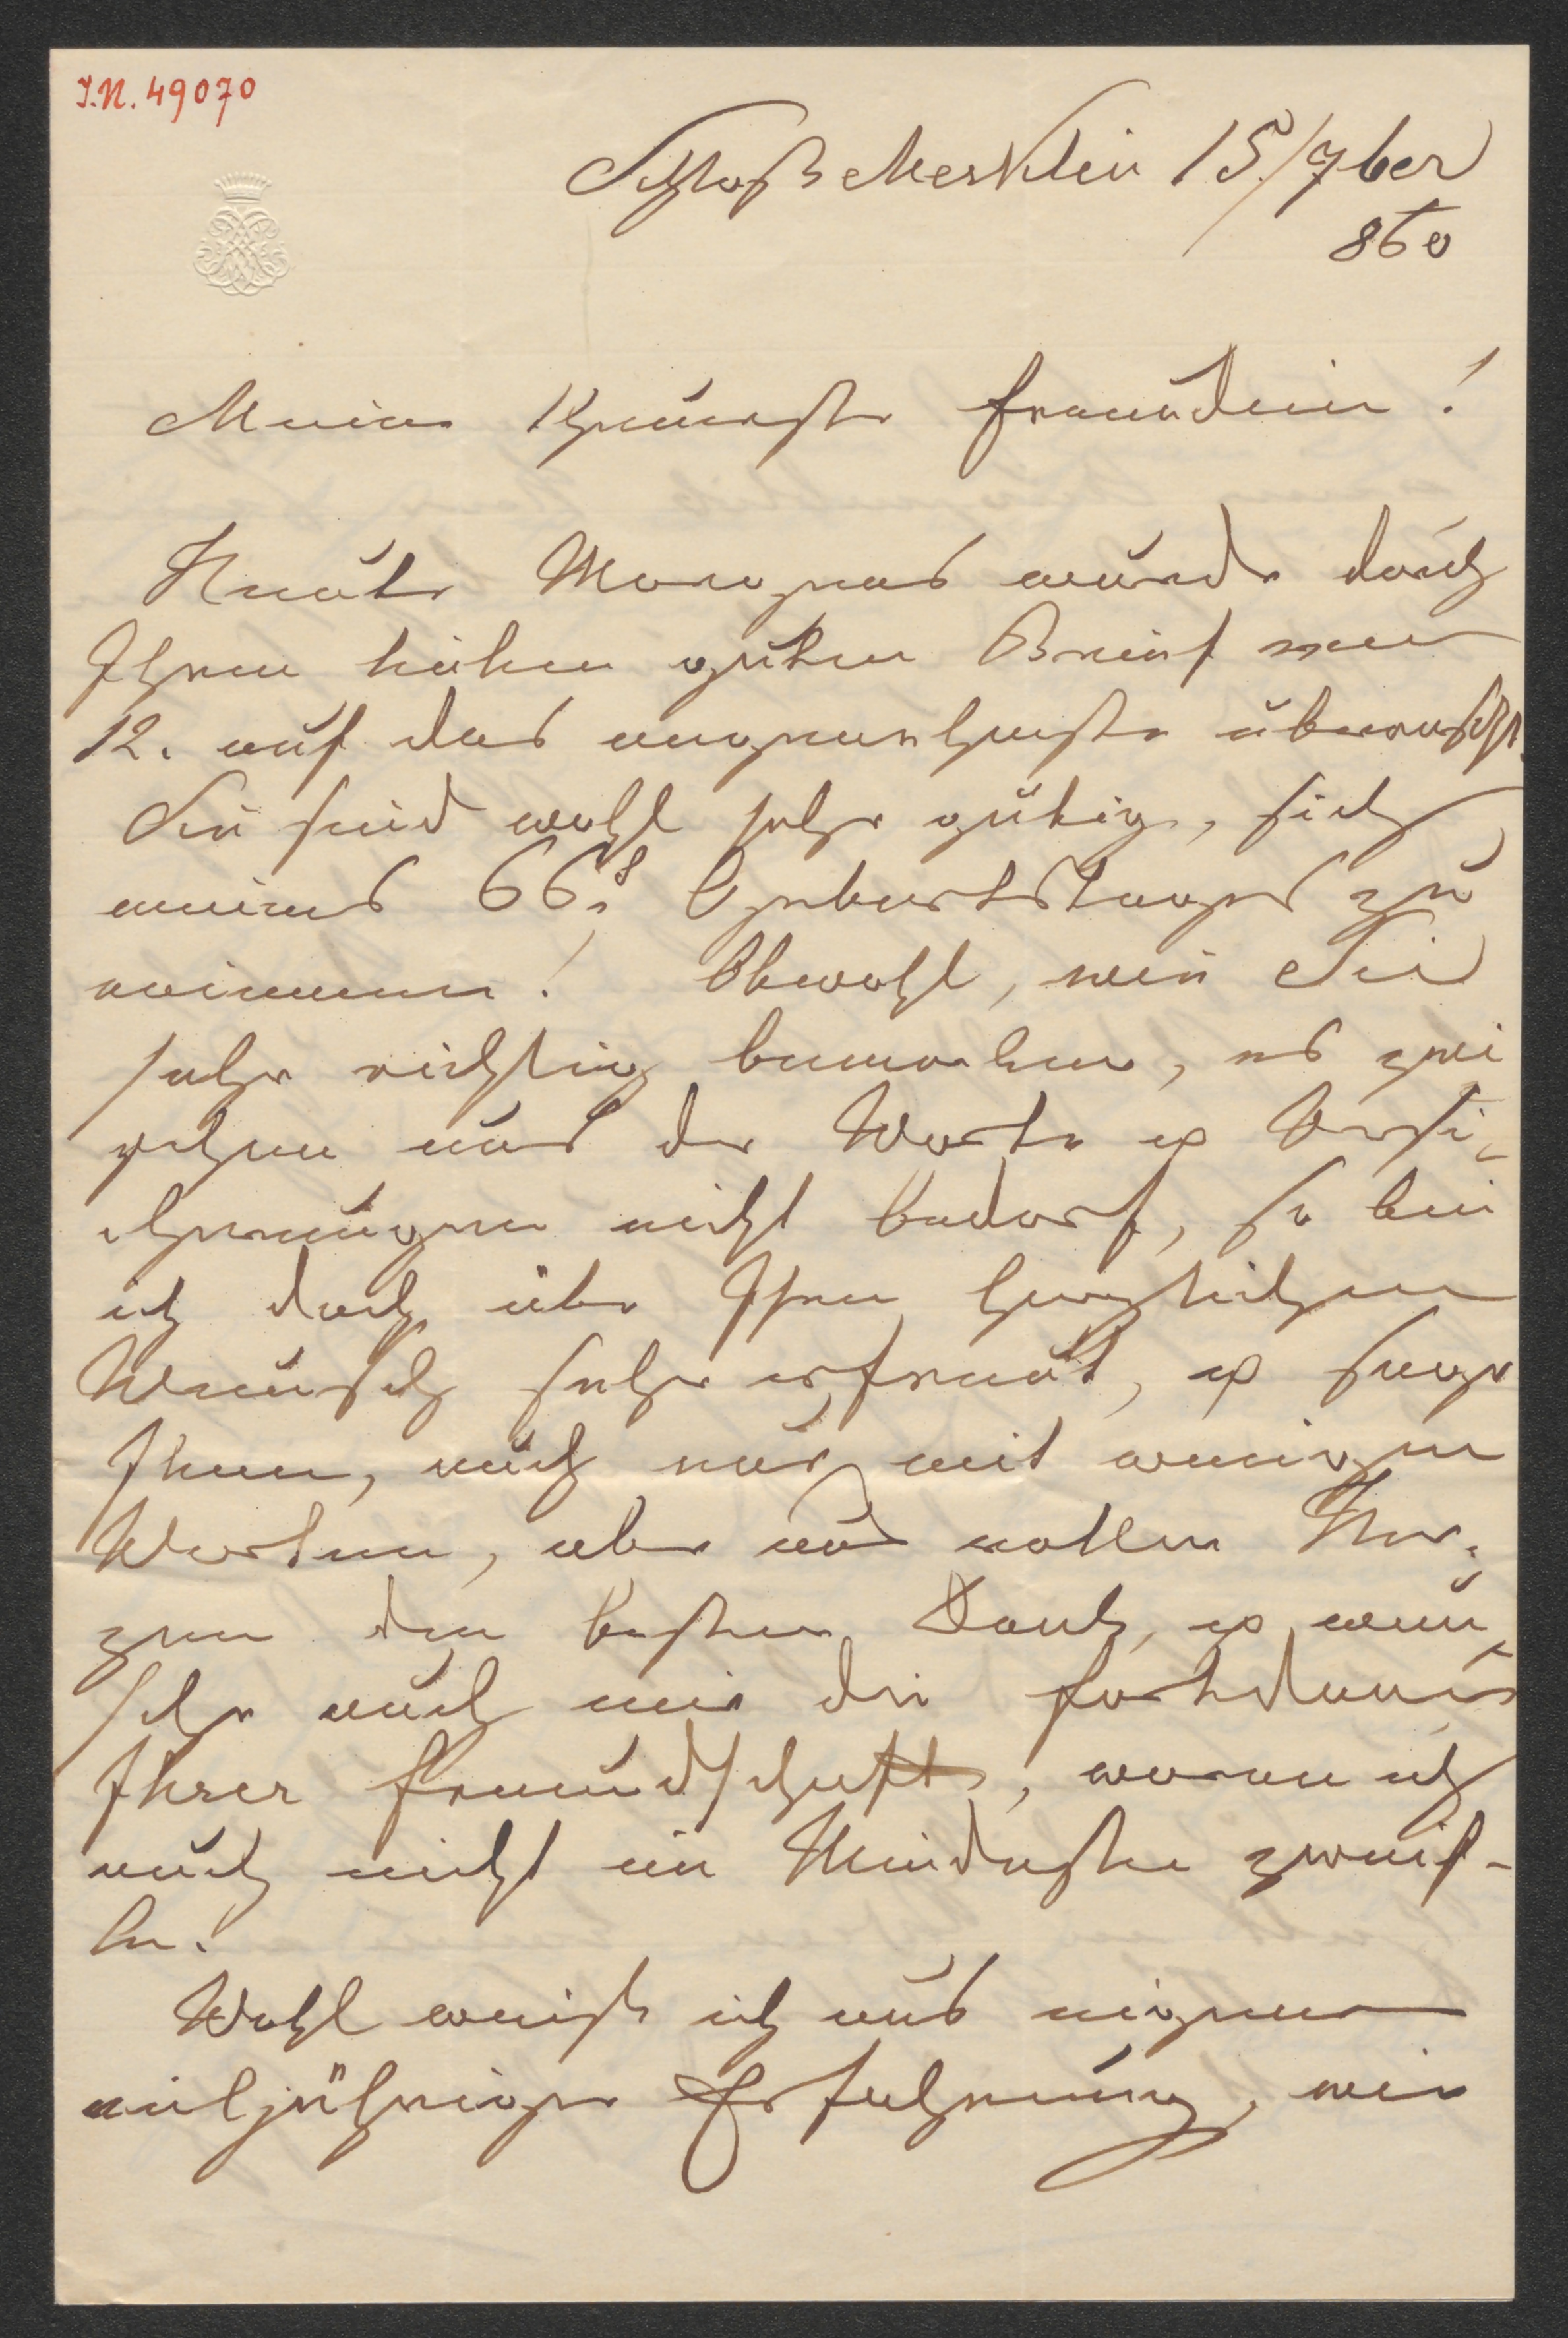 I.N. 49070
Schloß Merklin 15/7ber
860
Meine theuerste Freundin!
Heute Morgens wurde durch
Ihren lieben guten Brief vom
12. auf das angenehmste überrascht.
Sie sind wohl sehr gütig, sich
meines 66.s Geburtstages zu
erinnern! Obwohl, wie Sie
sehr richtig bemerken, es zwi
schen uns der Worte & Versi-
cherungen nicht bedarf, so bin
ich doch über Ihren herzlichen
Wunsch sehr erfreut, & sage
Ihnen, auch nur mit wenigen
Worten, aber aus vollem Her-
zen den besten Dank, & wün-
sche auch mir die Fortdauer
Ihrer Freundschaft, woran ich
auch nicht im Mindesten zweif-
le.
Wohl weiß ich aus eigener
vieljähriger Erfahrung, wie